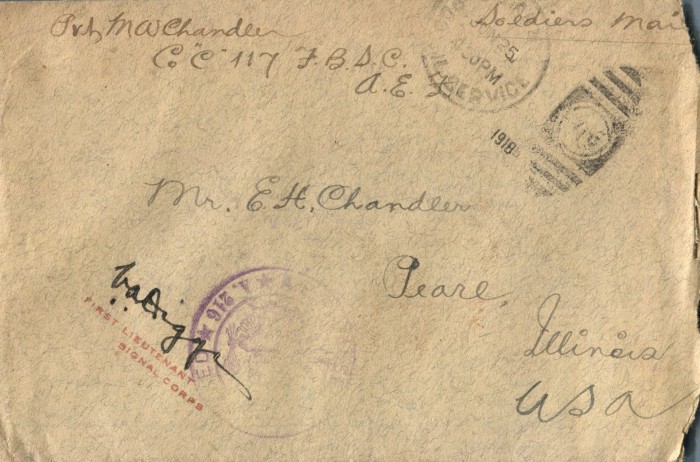 Pvt M W Chandler
Co "C" 117 F.B.S.C.
A.E.F.
Soldiers Mail
25
00PM
SERVICE
1918
Mr. E. H. Chandler
Pearl,
Illinois
USA
A. 216
FIRST LIEUTENANT
SIGNAL CORPS